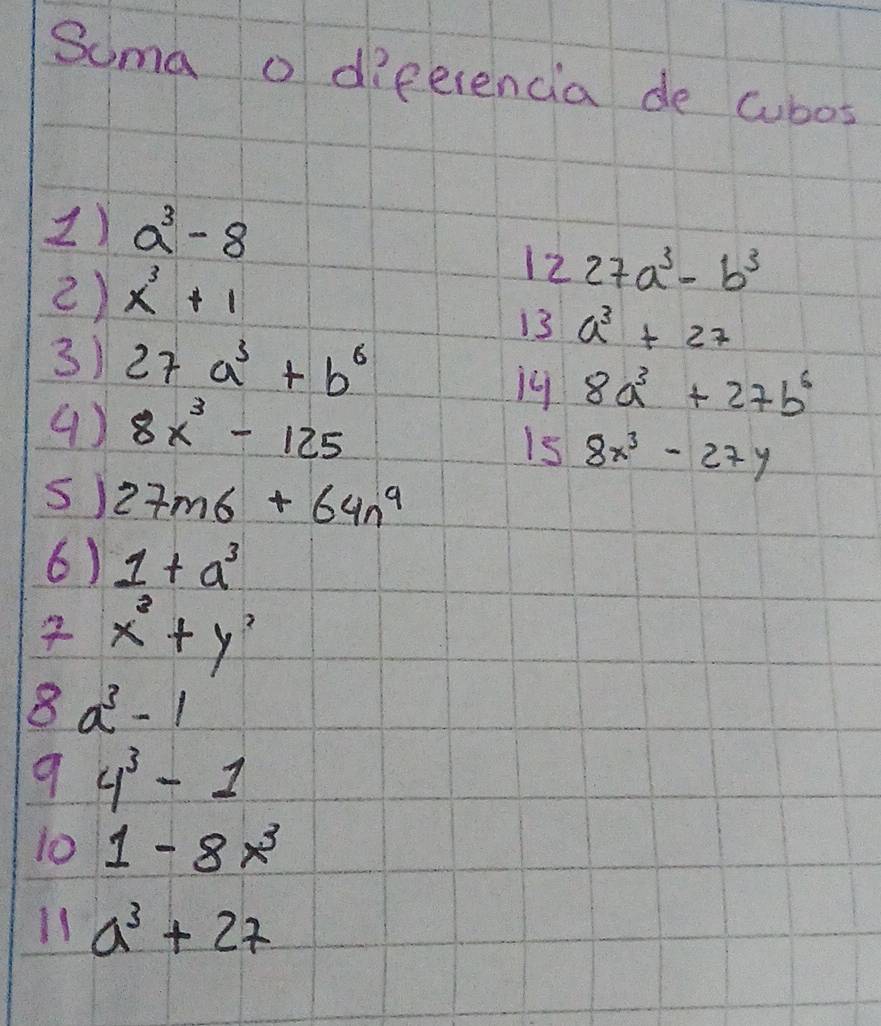 Suma o diferencia de cubos
1) a³ - 8
2) x³ + 1
3) 27 a³ + b⁶
4) 8x³ - 125
5) 27m6 + 64n⁹
6) 1 + a³
7 x³ + y³
8 a³ - 1
9 4³ - 1
10 1 - 8x³
11 a³ + 27
12 27a³ - b³
13 a³ + 27
14 8a³ + 27b⁶
15 8x³ - 27y